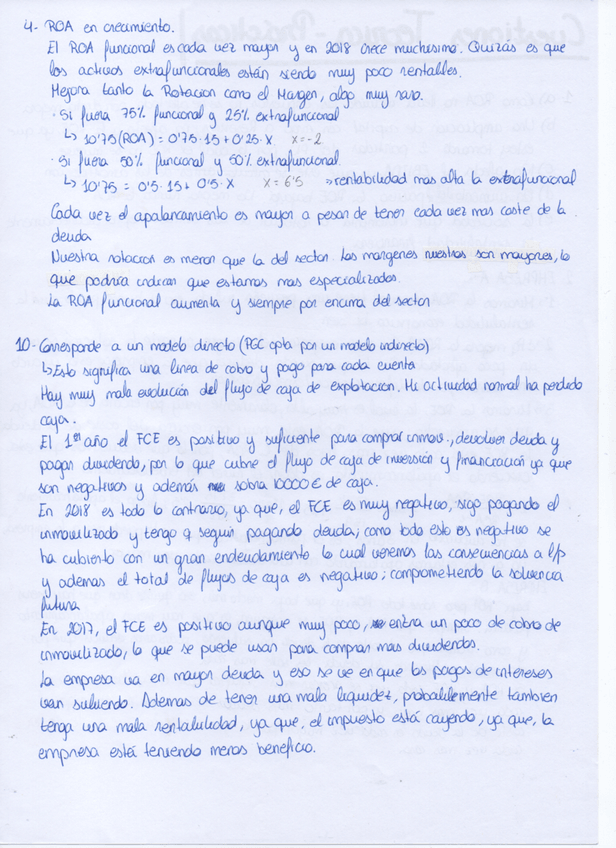 4- ROA en crecimiento.
El ROA funcional es cada vez mayor y en 2018 crece muchísimo. Quizás es que
los activos extrafuncionales estén siendo muy poco rentables.
Mejora tanto la Rotacion como el Margen, algo muy raro.
· Si fuera 75% funcional y 25% extrafuncional
↳ 10'75 (ROA) = 0'75·15+0'25·X x=-2
· Si fuera 50% funcional y 50% extrafuncional
↳ 10'75 = 0'5·15+0'5·X x=6'5 ⇒ rentabilidad mas alta la extrafuncional
Cada vez el apalancamiento es mayor a pesar de tener cada vez mas coste de la
deuda
Nuestra rotacion es menor que la del sector. Los margenes nuestros son mayores, lo
que podria indicar que estamos mas especializados.
La ROA funcional aumenta y siempre por encima del sector
10- Corresponde a un modelo directo (PGC opta por un modelo indirecto)
↳ Esto significa una linea de cobro y pago para cada cuenta
Hay muy mala evolución del flujo de caja de explotacion. Mi actividad normal ha perdido
caja.
El 1er año el FCE es positivo y suficiente para comprar inmov., devolver deuda y
pagar dividendo, por lo que cubre el flujo de caja de inversión y financiación ya que
son negativos y además sobra 10000 € de caja.
En 2018 es todo lo contrario, ya que, el FCE es muy negativo, sigo pagando el
inmovilizado y tengo q seguir pagando deuda; como todo esto es negativo se
ha cubierto con un gran endeudamiento lo cual veremos las consecuencias a l/p
y ademas el total de flujos de caja es negativo; comprometiendo la solvencia
futura
En 2017, el FCE es positivo aunque muy poco, entra un poco de cobro de
inmovilizado, lo que se puede usar para comprar mas dividendos.
La empresa va en mayor deuda y eso se ve en que los pagos de intereses
van subiendo. Ademas de tener una mala liquidez, probablemente tambien
tenga una mala rentabilidad, ya que, el impuesto está cayendo, ya que, la
empresa está teniendo menos beneficio.